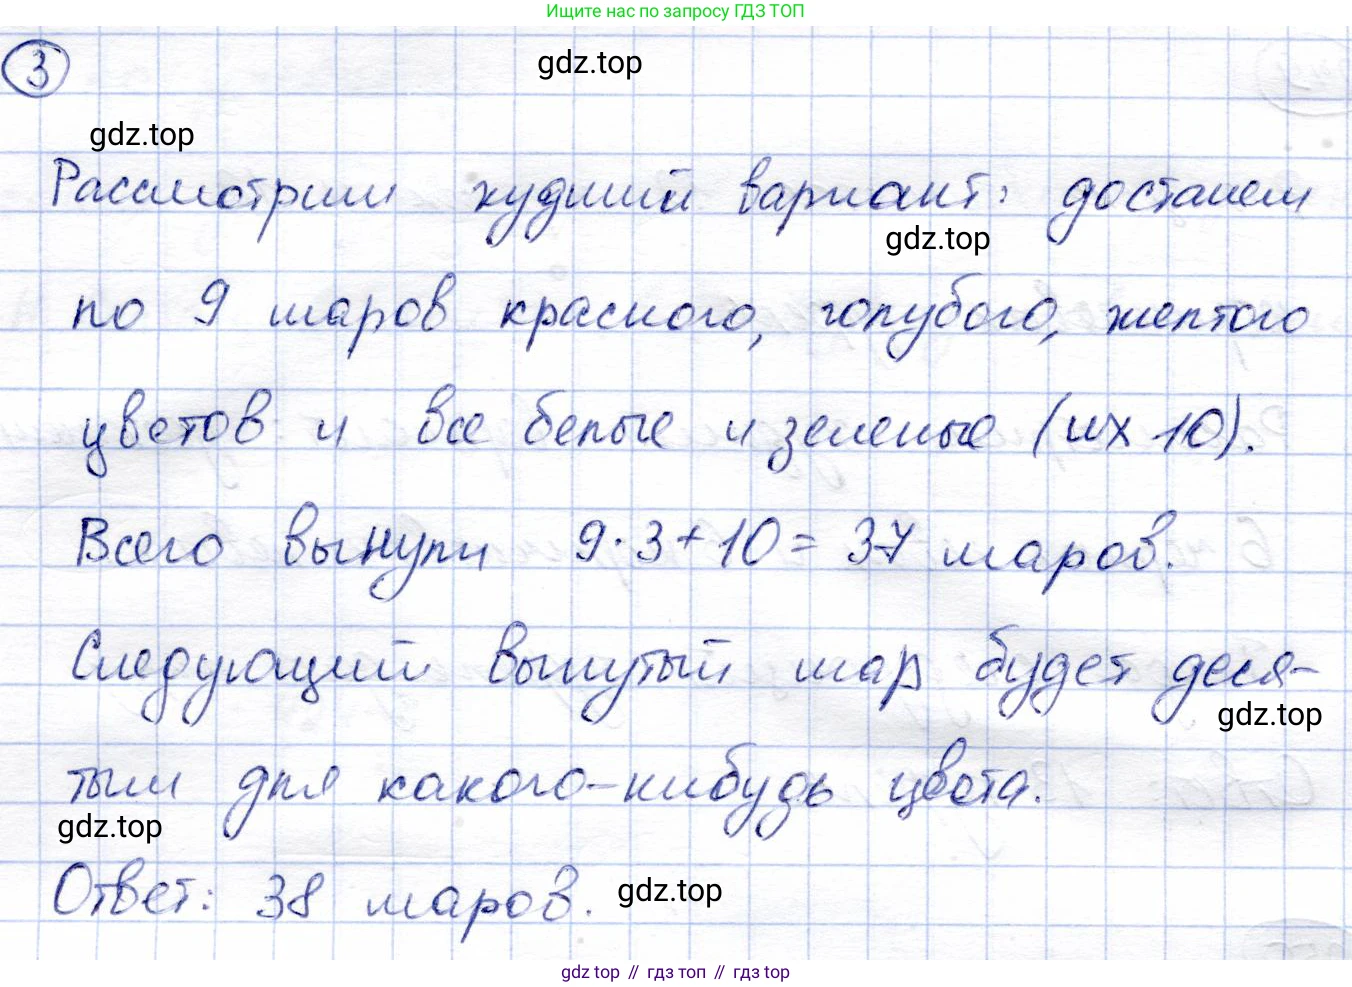 Ищите нас по запросу ГДЗ ТОП
3
gdz.top
gdz.top
Рассмотрим худший вариант: достанем
gdz.top
по 9 шаров красного, голубого, желтого
цветов и все белые и зеленые (их 10).
Всего вынули 9·3+10=37 шаров.
Следующий вынутый шар будет деся-
gdz.top
тым для какого-нибудь цвета.
gdz.top
Ответ: 38 шаров.
gdz.top
gdz top // гдз топ // гдз top